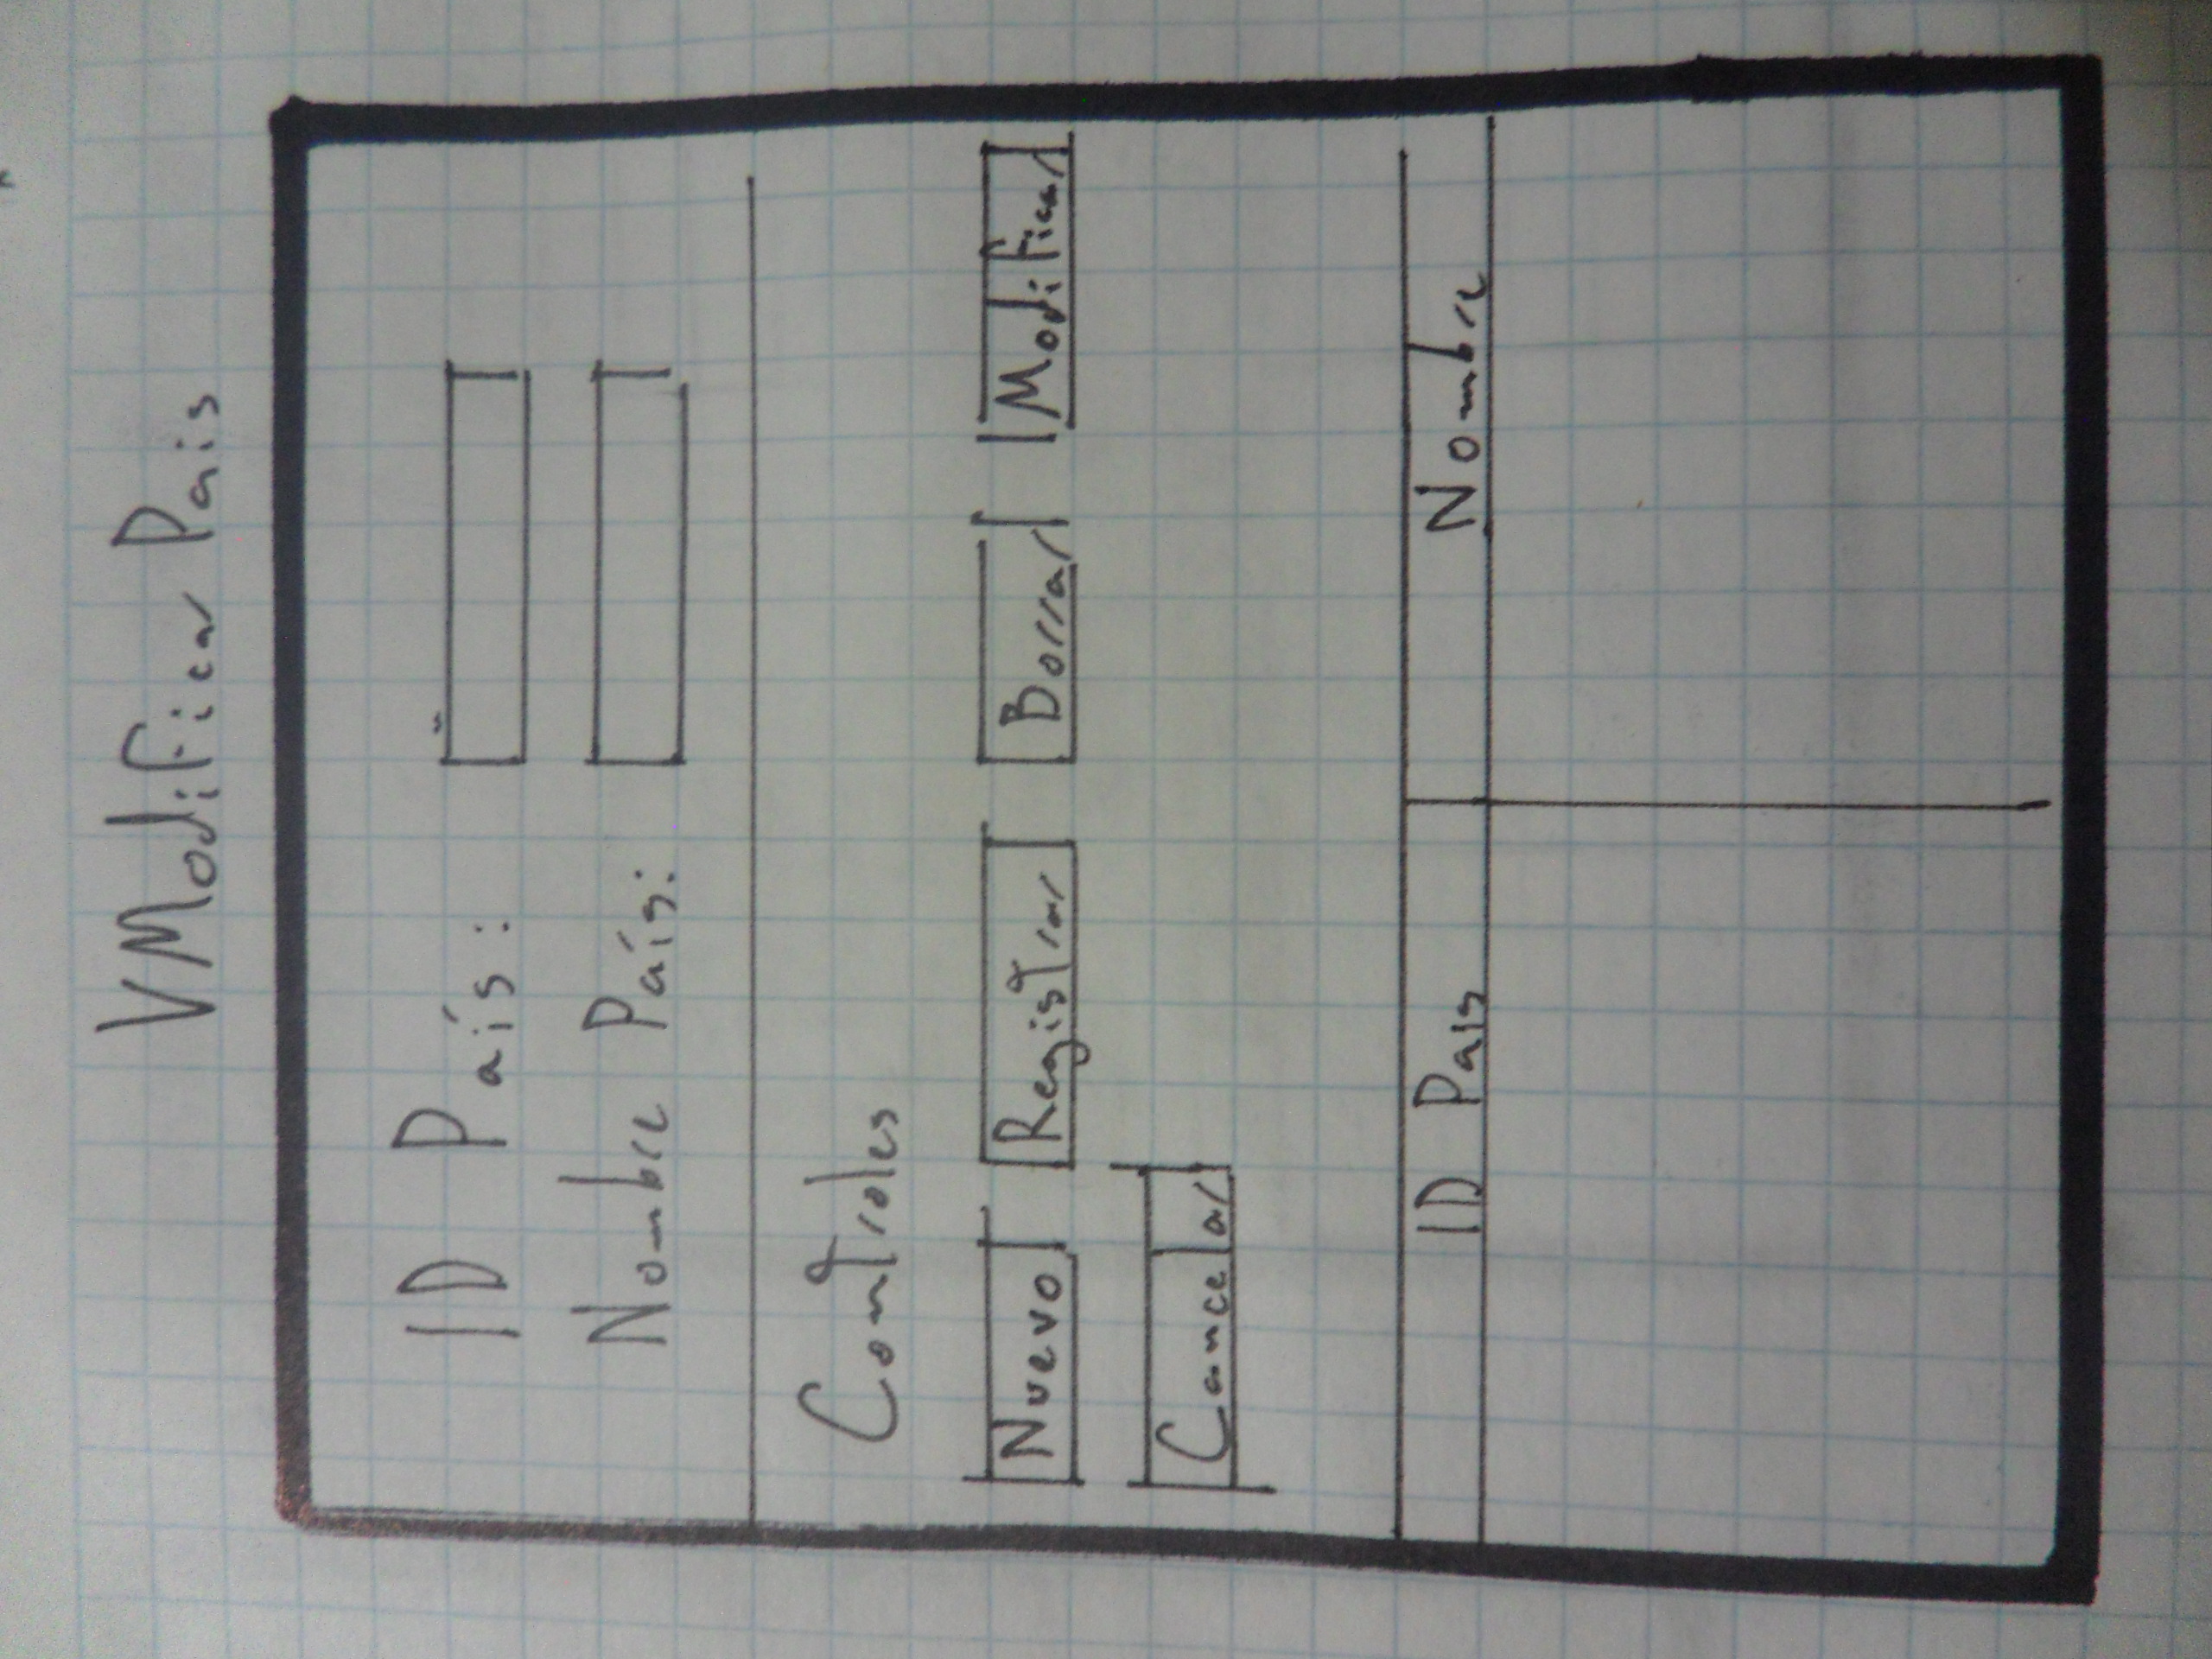 VModificar Pais
ID País:
Nombre País:
Controles
Nuevo Registrar Borrar Modificar
Cancelar
ID Pais Nombre